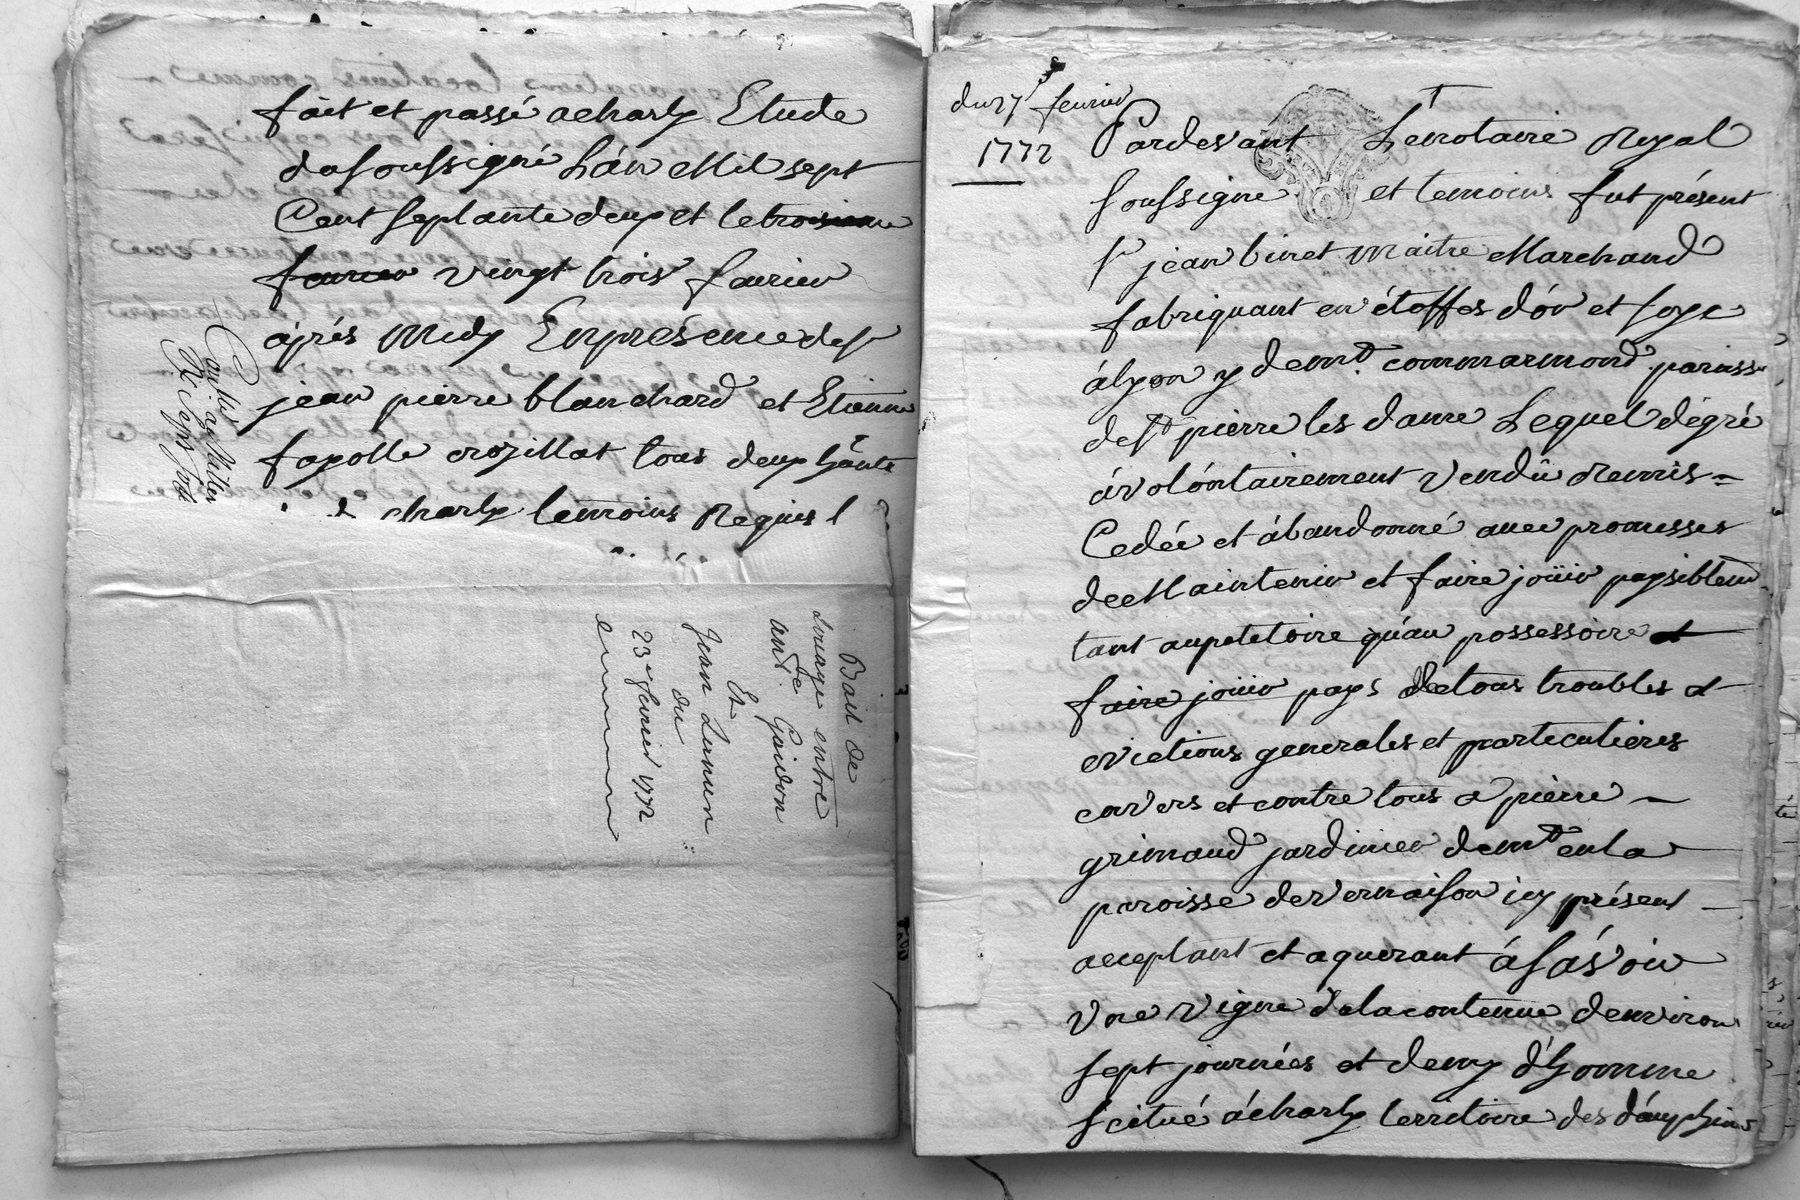 fait et passé a charly Etude
du soussigné L'an Mil sept
Cent septante deux et le troisieme
fevrier vingt trois fevrier
aprés Midy En présence de sr
jean pierre blanchard et Etienne
fayolle crozillat tous deux hânts
charly temoins Requis
Bail de
Louage entre
ant. Gaidon
Et
Jean
du
23e fevrier 1772
du 27 fevrier
1772
Pardevant Le notaire Royal
soussigne et temoins fut présent
sr jean binet maitre Marchand
fabriquant en étoffes d'or et soye
á lyon y demt. commarmond paroisse
de st pierre les dame Lequel de gré
á volóntairement vendû Remis
Cedée et ábandonné avec promesses
de Maintenir et faire joüir paysiblemt
tant au petetoire qu'au possessoire et
faire joüir pays de tous troubles et
evictions generales et particulieres
envers et contre tous a pierre
grimaud jardinier demt en la
paroisse de vernaison icy présent
acceptant et aquerant á sávoir
Vne vigne de la contenue denviron
sept journées et demy d'homme
scitué á charly territoire des dauphins